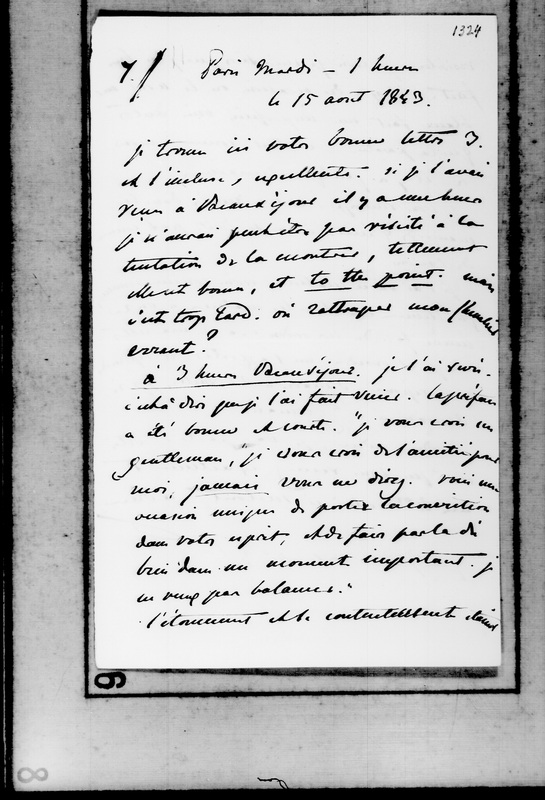 1324
7. Paris Mardi – 1 heure
le 15 aout 1843.
je trouve ici votre bonne lettre 3.
et l'incluse, excellente. si je l'avais
reçue à Beauséjour il y a une heure
je n'aurais peut être pas résisté à la
tentation de la montrer, tellement
elle est bonne, et to the point. mais
c'est trop tard. où rattraper mon
errant?
à 3 heures Beauséjour. je l'ai revu.
c'est à dire que je l'ai fait venir. la préface
a été bonne et courte. "je vous crois un
gentleman, je vous crois de l'amitié pour
moi, jamais vous ne direz. voici une
occasion unique de porter la conviction
dans votre esprit, et de faire par là du
bien dans un moment important. je
ne veux pas balancer."
l'étonnement et le contentement étaient
6
8